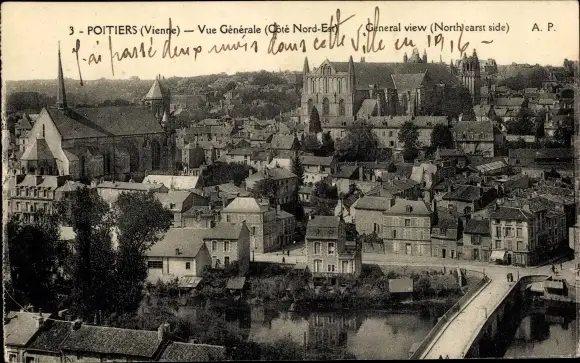 3 - POITIERS (Vienne) - Vue Générale (Côté Nord-Est) General view (North) earst side) A. P.
J'ai passé deux mois dans cette ville en 1916 -